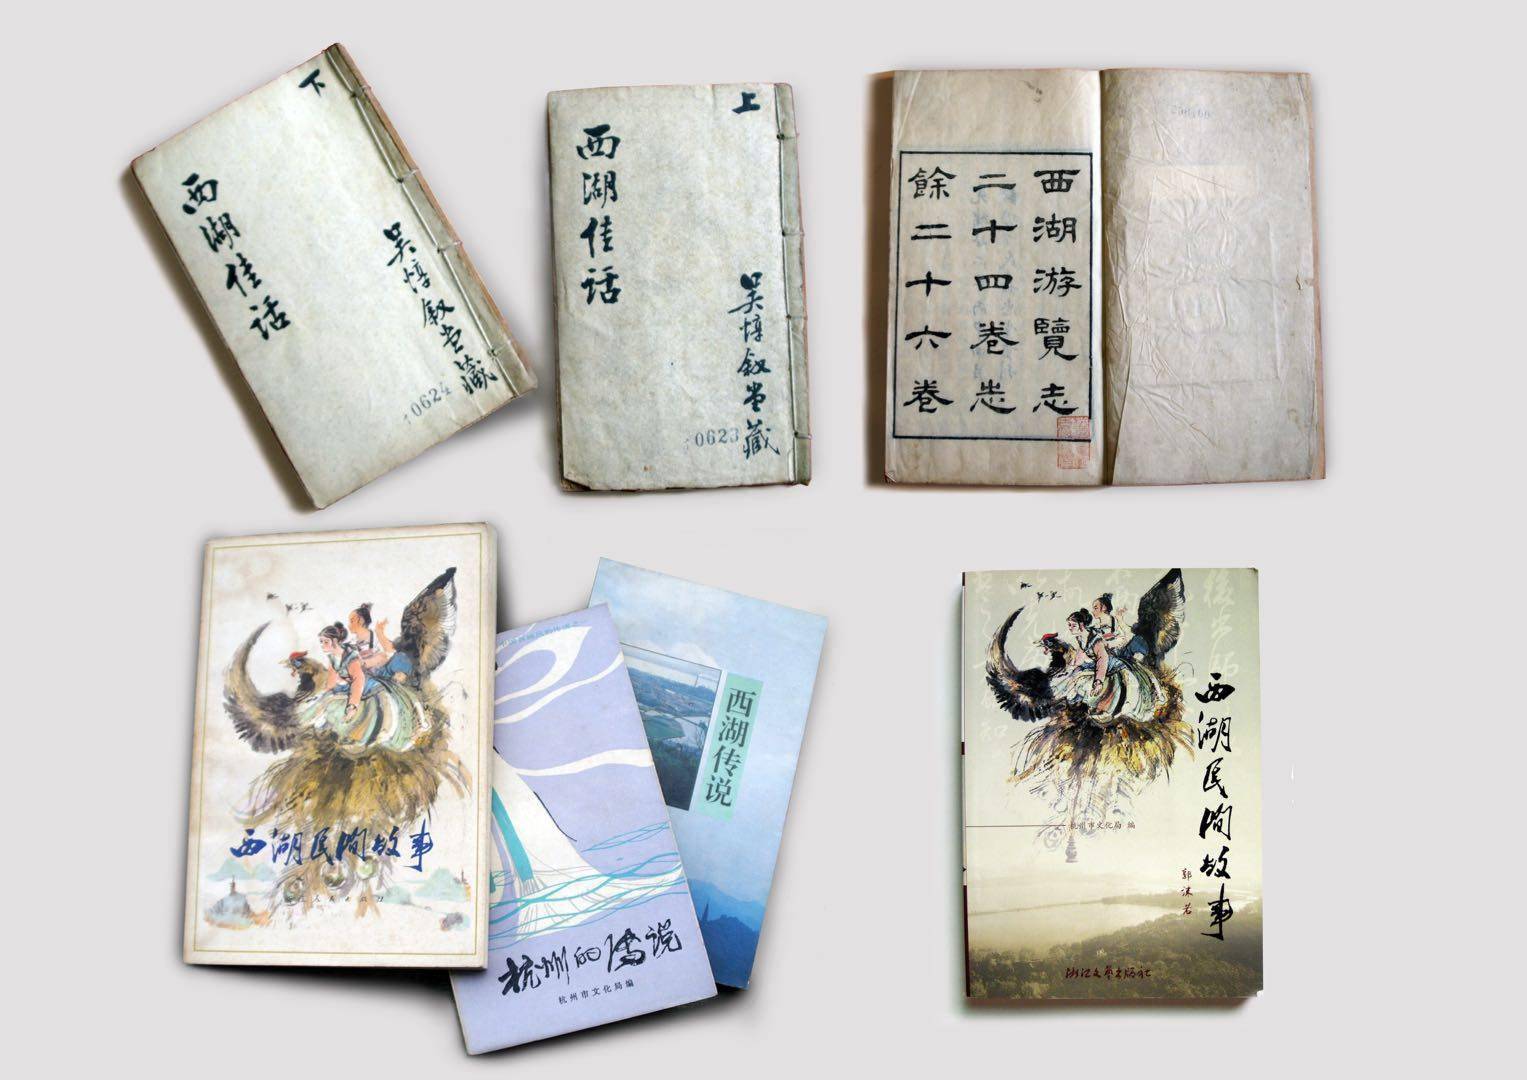 下
西湖佳话
吴惇叙堂藏
0624
上
西湖佳话
吴惇叙堂藏
0623
西湖游覽志
二十四卷志
餘二十六卷
西湖民间故事
浙江人民出版社
杭州的传说
杭州市文化局编
西湖传说
西湖民间故事
郭沫若
杭州市文化局 编
浙江文艺出版社